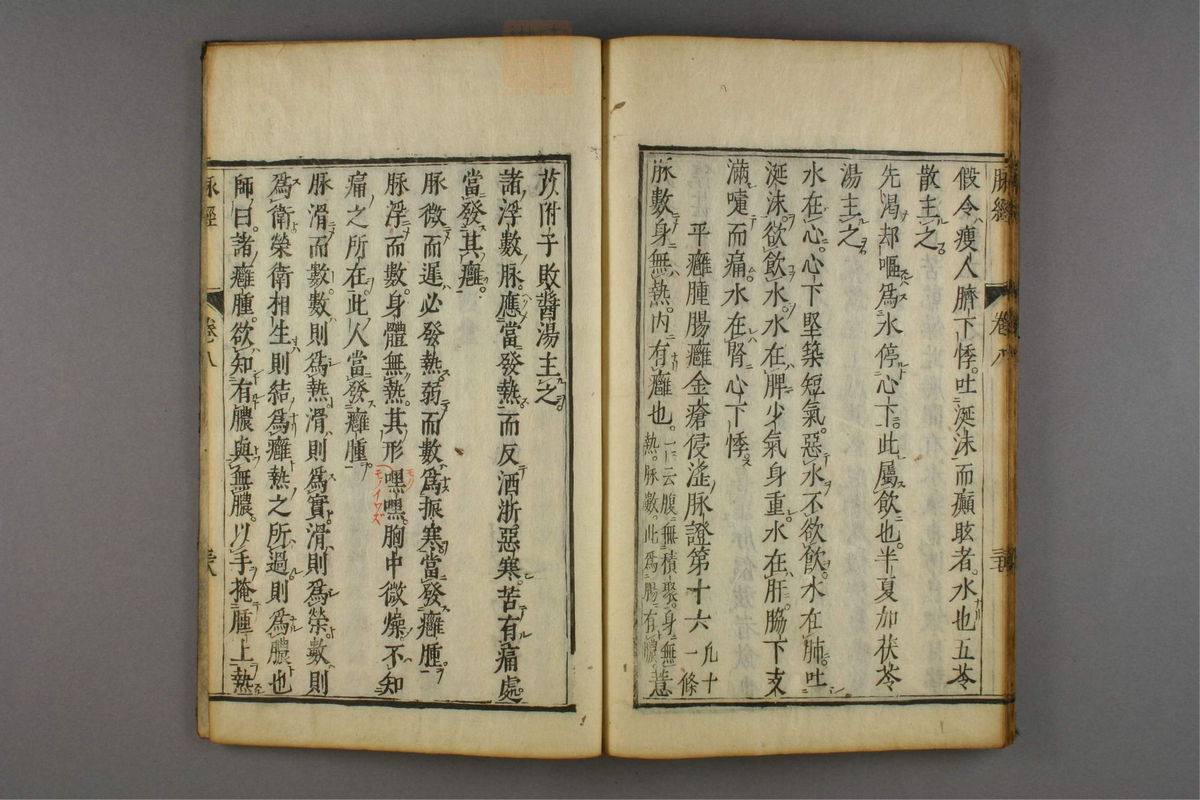 脉經
卷八
假令瘦人臍下悸。吐涎沫而癲眩者。水也。五苓
散主之。
先渴却嘔。爲水停心下。此屬飲也。半夏加茯苓
湯主之。
水在心。心下堅築短氣。惡水不欲飲。水在肺。吐
涎沫。欲飲水。水在脾。少氣身重。水在肝。脇下支
滿。嚏而痛。水在腎。心下悸。
平癰腫腸癰金瘡侵淫脉證第十六 凡十一條
脉數身無熱。内有癰也。一云腹無積聚。身無熱。脉數。此爲腸有膿。薏
苡附子敗醬湯主之。
諸浮數脉。應當發熱。而反洒淅惡寒。苦有痛處。
當發其癰。
脉微而遲。必發熱。弱而數。爲振寒。當發癰腫。
脉浮而數。身體無熱。其形嘿嘿。胸中微燥。不知
痛之所在。此人當發癰腫。
脉滑而數。數則爲熱。滑則爲實。滑則爲榮。數則
爲衛。榮衛相生則結爲癰。熱之所過則爲膿也
師曰。諸癰腫。欲知有膿與無膿。以手掩腫上。熱
脉經
卷八